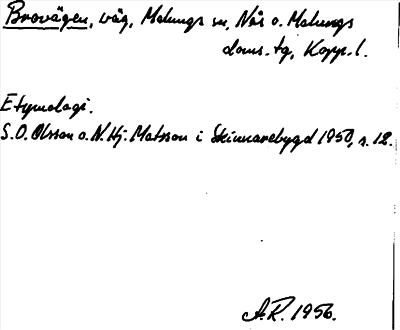 Brovägen, väg, Malungs sn, Nås o. Malungs
doms. tg, Kopp. l.
Etymologi.
S.O. Olsson o. N. Hj. Matsson i Skinnarebygd 1950, s. 12.
A.R. 1956.